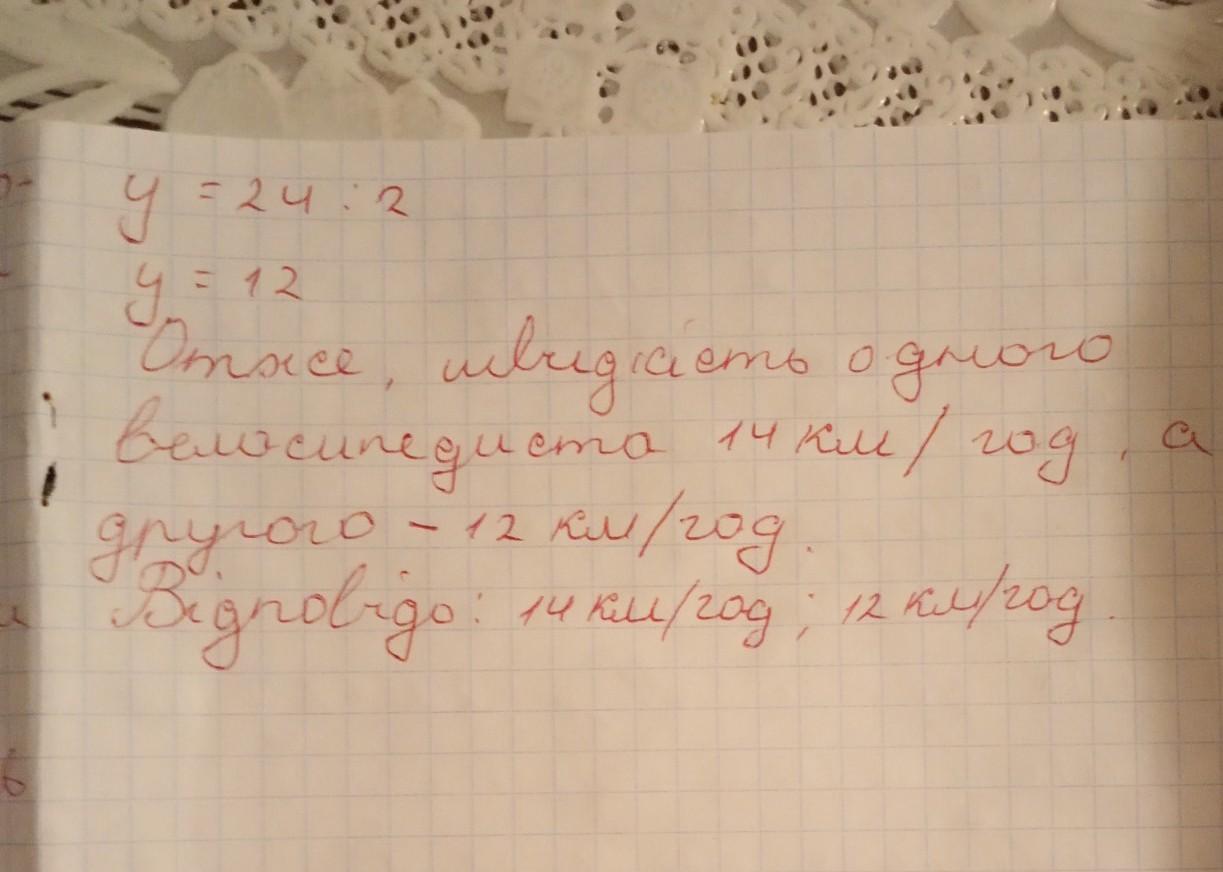 у = 24 : 2
у = 12
Отже, швидкість одного
велосипедиста 14 км/год, а
другого – 12 км/год.
Відповідь: 14 км/год; 12 км/год.